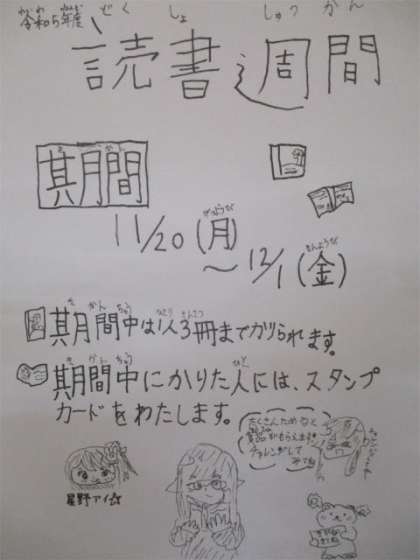 令和5年度
読書週間
どくしょしゅうかん
期間
きかん
11/20(月)
げつようび
~12/1(金)
きんようび
期間中は1人3冊までかりられます。
期間中にかりた人には、スタンプ
カードをわたします。
たくさんためると
賞品がもらえます!
チャレンジして
みてね
星野アイ☆